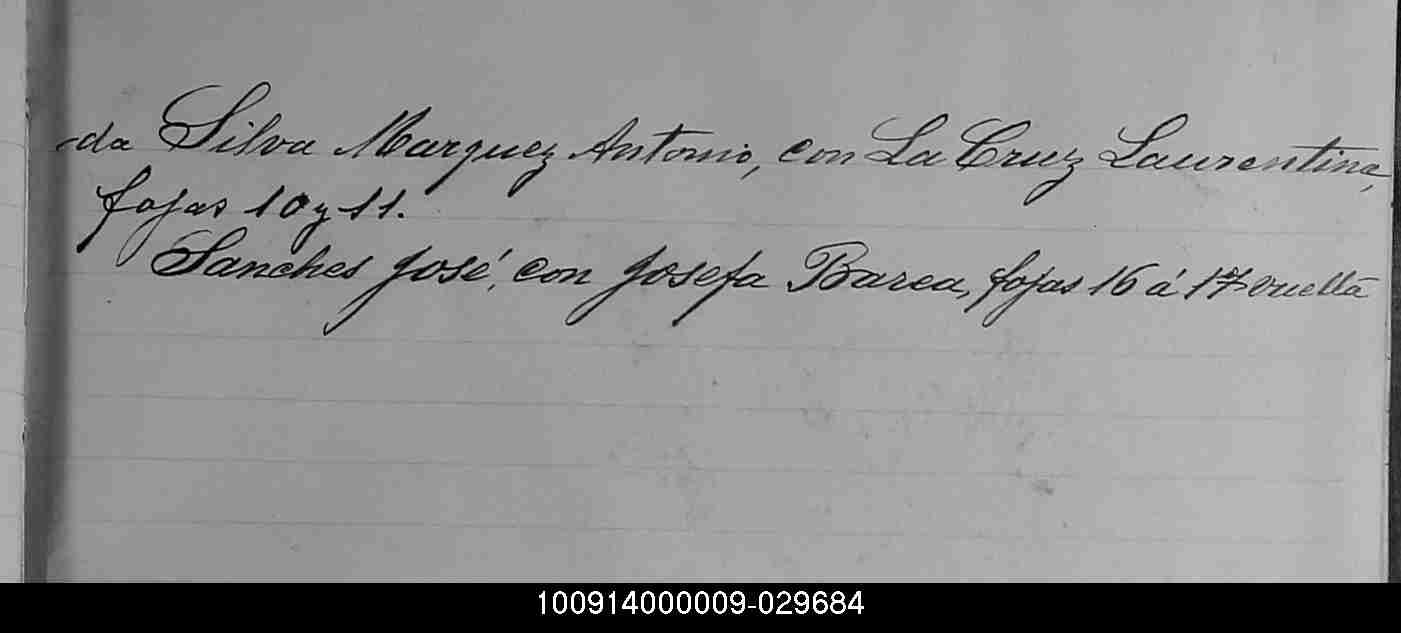 da Silva Marquez Antonio, con La Cruz Laurentina,
fojas 10 y 11.
Sanches José, con Josefa Barea, fojas 16 á 17 vuelta
100914000009-029684